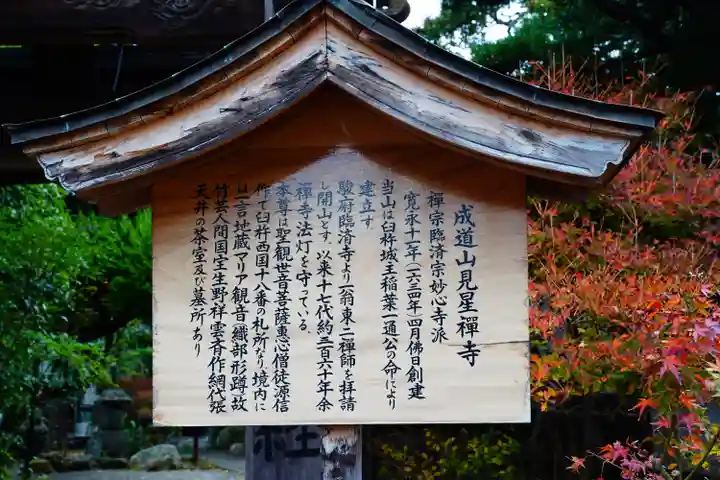 成道山見星禅寺
禅宗臨済宗妙心寺派
寛永十一年（一六三四年）四月佛日創建
当山は臼杵城主稲葉一通公の命により
建立す。
駿府臨済寺より一翁東二禅師を拝請
し開山とす。以来十七代約三百六十年余
禅寺法灯を守っている。
本尊は聖観世音菩薩惠心僧徒源信
作で臼杵西国十八番の札所なり、境内に
は一言地蔵マリア観音（織部形蹲）故
竹芸人間国宝生野祥雲斉作網代張
天井の茶室及び墓所あり